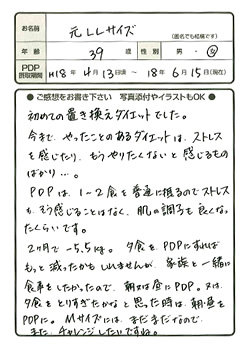 お名前 元LLサイズ
(匿名でも結構です)
年齢 39歳 性別 男・女
PDP摂取期間 H18年4月13日頃〜18年6月15日(現在)
●ご感想をお書き下さい 写真添付やイラストもOK●
初めての置き換えダイエットでした。
今まで、やったことのあるダイエットは、ストレス
を感じたり、もうやりたくないと感じるもの
ばかり…。
PDPは、1〜2食を普通に摂るのでストレス
も、そう感じることはなく、肌の調子も良くなっ
たくらいです。
2ヶ月で-5.5kg。夕食をPDPにすれば
もっと減ったかもしれませんが、家族と一緒に
食事をしたかったので、朝又は昼にPDP。又は、
夕食をとりすぎたかなと思った時は、朝・昼を
PDPに。Mサイズには、まだまだなので、
また、チャレンジしたいですね。